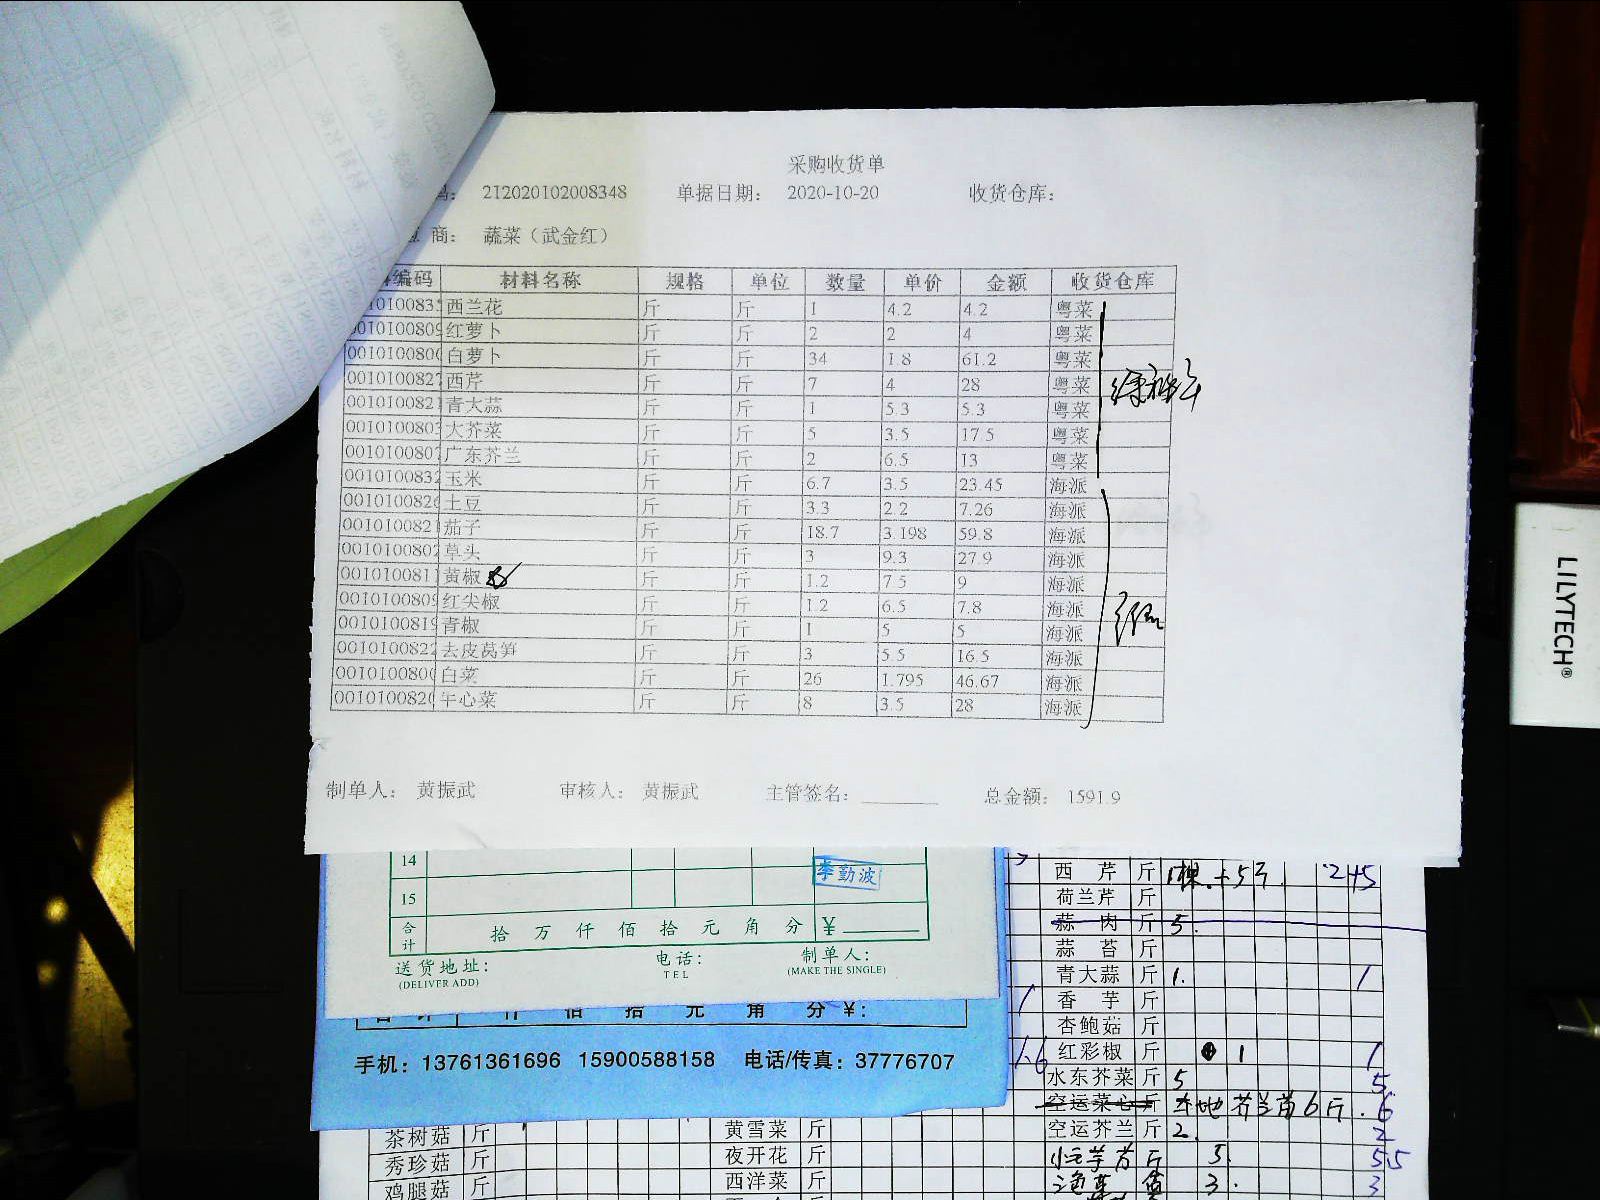 采购收货单
码： 212020102008348 单据日期： 2020-10-20 收货仓库：
应 商： 蔬菜（武金红）
编码 材料名称 规格 单位 数量 单价 金额 收货仓库
西兰花 斤 斤 1 4.2 4.2 粤菜
001010080 红萝卜 斤 斤 2 2 4 粤菜
001010080 白萝卜 斤 斤 34 1.8 61.2 粤菜
001010082 西芹 斤 斤 7 4 28 粤菜
001010082 青大蒜 斤 斤 1 5.3 5.3 粤菜
001010080 大芥菜 斤 斤 5 3.5 17.5 粤菜
001010080 广东芥兰 斤 斤 2 6.5 13 粤菜
001010083 玉米 斤 斤 6.7 3.5 23.45 海派
001010082 土豆 斤 斤 3.3 2.2 7.26 海派
001010082 茄子 斤 斤 18.7 3.198 59.8 海派
001010080 草头 斤 斤 3 9.3 27.9 海派
001010081 黄椒 斤 斤 1.2 7.5 9 海派
001010080 红尖椒 斤 斤 1.2 6.5 7.8 海派
001010081 青椒 斤 斤 1 5 5 海派
001010082 去皮莴笋 斤 斤 3 5.5 16.5 海派
001010080 白菜 斤 斤 26 1.795 46.67 海派
001010082 心菜 斤 斤 8 3.5 28 海派
制单人： 黄振武 审核人： 黄振武 主管签名： 总金额： 1591.9
14
李勤波
15
合计 拾 万 仟 佰 拾 元 角 分 ¥
送货地址： 电话： 制单人：
(DELIVER ADD) TEL (MAKE THE SINGLE)
佰 拾 元 角 分 ¥：
手机：13761361696 15900588158 电话/传真：37776707
西芹 斤
荷兰芹 斤
蒜肉 斤 5.
蒜苔 斤
青大蒜 斤 1. 1
香芋 斤
杏鲍菇 斤
红彩椒 斤 1 1
水东芥菜 斤 5 5
空运菜心 斤 本地芥兰苗6斤. 6
空运芥兰 斤 2. 2
茶树菇 斤 黄雪菜 斤
秀珍菇 斤 夜开花 斤
鸡腿菇 斤 西洋菜 斤
LILYTECH®